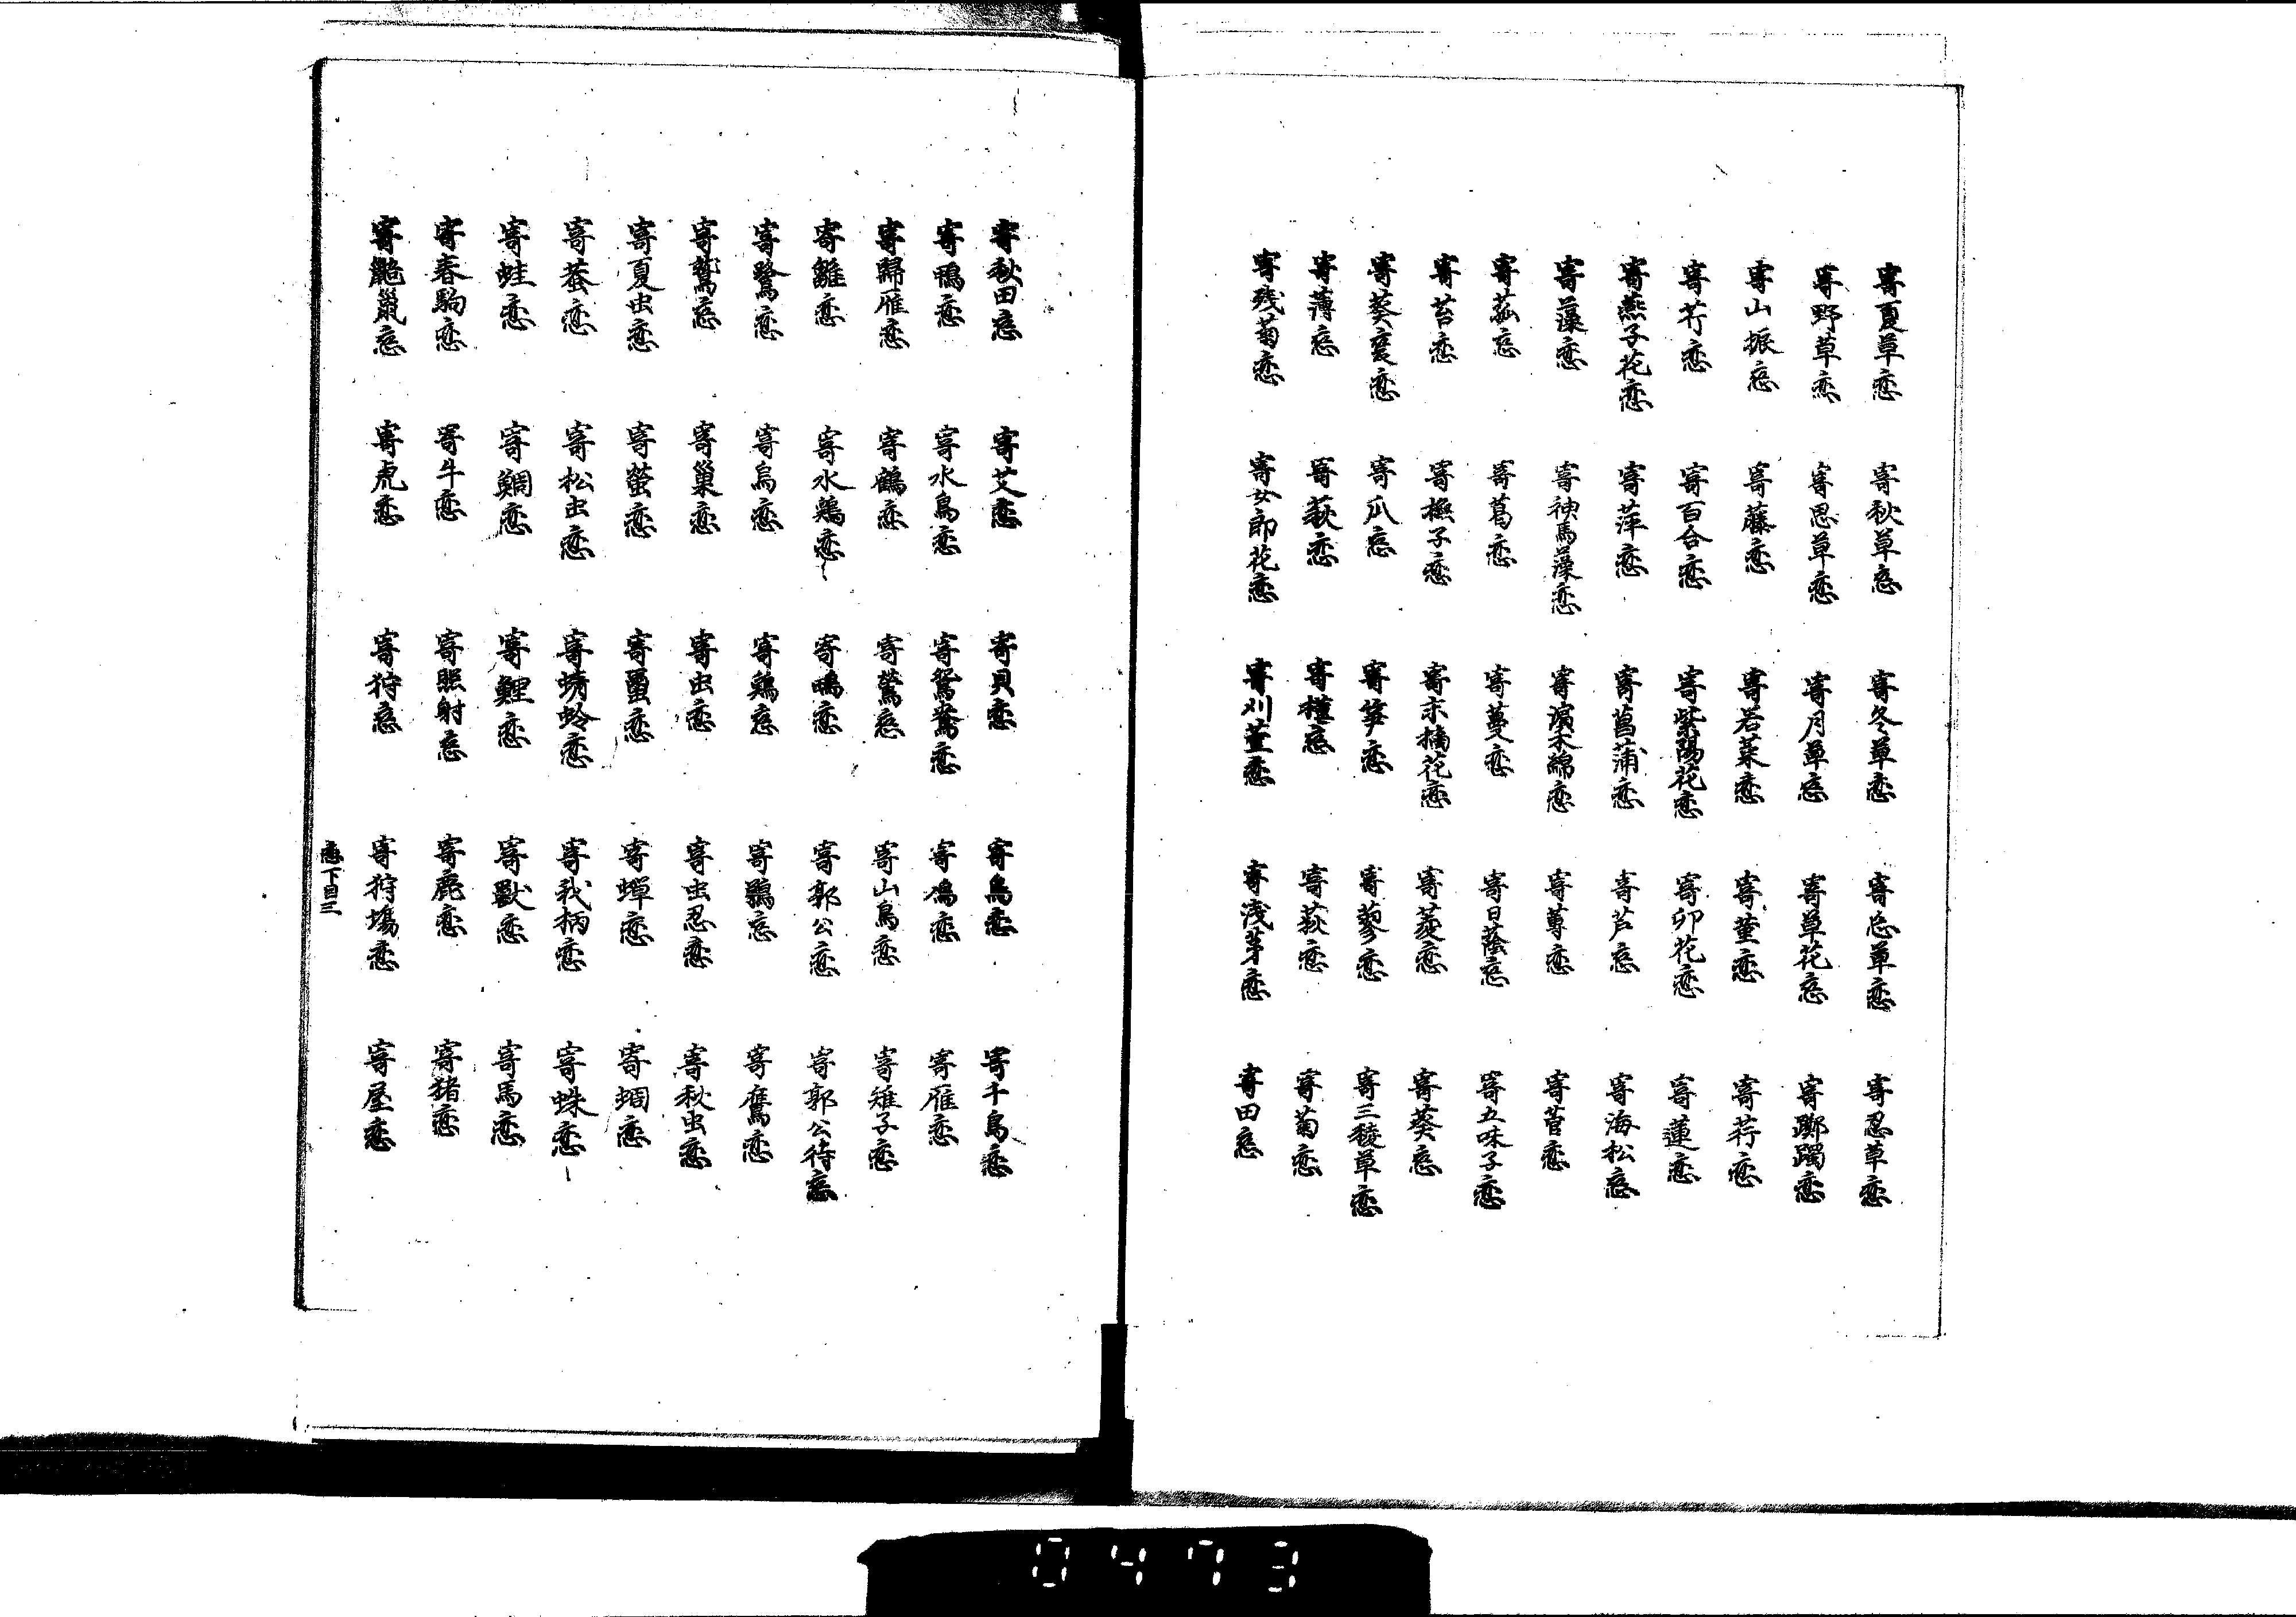 寄夏草恋 寄秋草恋 寄冬草恋 寄忘草恋 寄忍草恋
寄野草恋 寄思草恋 寄月草恋 寄草花恋 寄躑躅恋
寄山振恋 寄藤恋 寄若菜恋 寄菫恋 寄荇恋
寄芹恋 寄百合恋 寄紫陽花恋 寄卯花恋 寄蓮恋
寄燕子花恋 寄萍恋 寄菖蒲恋 寄芦恋 寄海松恋
寄藻恋 寄神馬藻恋 寄濱木綿恋 寄蓴恋 寄菅恋
寄菰恋 寄葛恋 寄蔓恋 寄日蔭恋 寄五味子恋
寄苔恋 寄撫子恋 寄末摘花恋 寄菱恋 寄葵恋
寄葵衰恋 寄瓜恋 寄笋恋 寄蓼恋 寄三稜草恋
寄薄恋 寄萩恋 寄槿恋 寄荻恋 寄菊恋
寄残菊恋 寄女郎花恋 寄刈萱恋 寄浅茅恋 寄田恋
寄秋田恋 寄艾恋 寄貝恋 寄鳥恋 寄千鳥恋
寄鴨恋 寄水鳥恋 寄鴛鴦恋 寄恋 寄雁恋
寄歸雁恋 寄鶴恋 寄鶯恋 寄山鳥恋 寄雉子恋
寄雛恋 寄水鶏恋 寄鴫恋 寄郭公恋 寄郭公待恋
寄鷺恋 寄烏恋 寄鶏恋 寄鶚恋 寄鷹恋
寄鷲恋 寄巣恋 寄虫恋 寄虫忍恋 寄秋虫恋
寄夏虫恋 寄螢恋 寄恋 寄蟬恋 寄蜩恋
寄蚕恋 寄松虫恋 寄蜻蛉恋 寄我柄恋 寄蛛恋
寄蛙恋 寄鯛恋 寄鯉恋 寄獣恋 寄馬恋
寄春駒恋 寄牛恋 寄照射恋 寄鹿恋 寄猪恋
寄鼯鼠恋 寄虎恋 寄狩恋 寄狩場恋 寄屋恋
恋下目三
0473